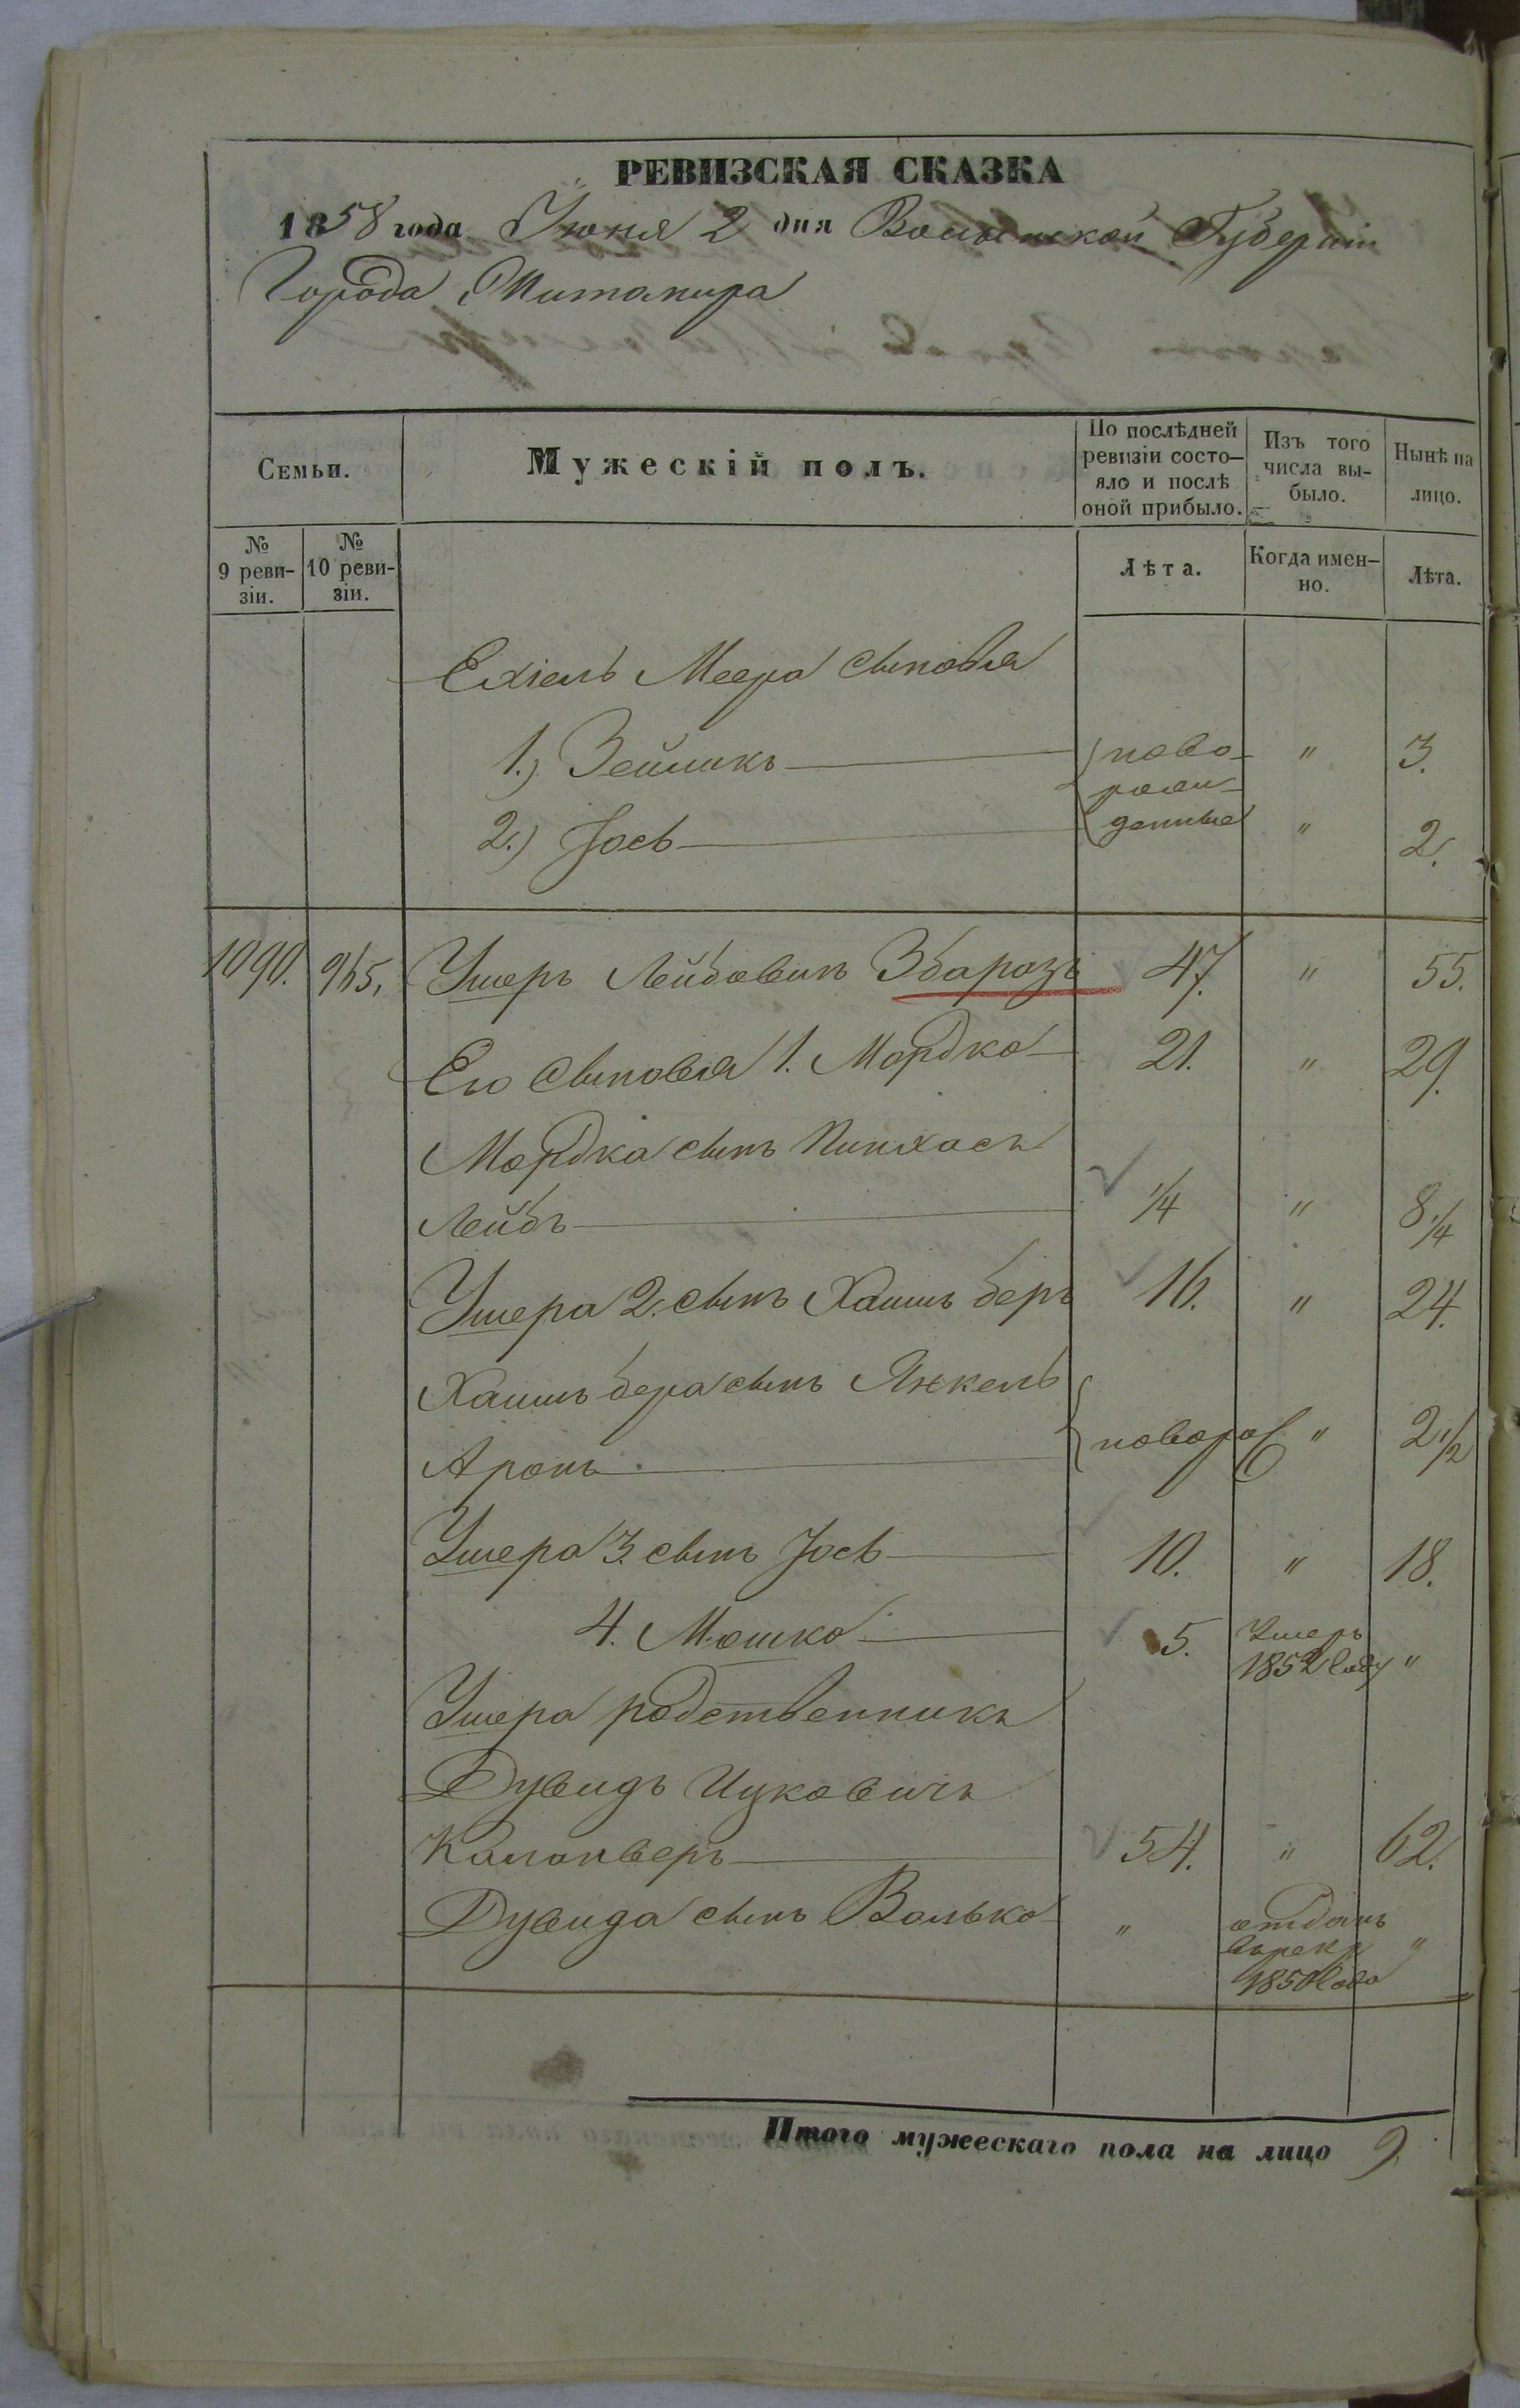 РЕВИЗСКАЯ СКАЗКА
1858 года Июня 2 дня Волынской Губерніи
Города Житомира
Семьи.
Мужескій полъ.
По послѣдней ревизіи состояло и послѣ оной прибыло.
Изъ того числа выбыло.
Нынѣ на лицо.
№ 9 ревизіи.
№ 10 ревизіи.
Лѣта.
Когда именно.
Лѣта.
Ехіель Меера сыновья
1.) Зейликъ ново- " 3.
рож-
2.) Іось денные " 2.
1090. 965. Ушеръ Лейбовичъ Збаразъ 47. " 55.
Его сыновья 1. Мордко 21. " 29.
Мордка сынъ Пинхасъ
Лейбъ 1/4 " 8 1/4
Ушера 2. сынъ Хаимъ беръ 16. " 24.
Хаимъ бера сынъ Янкель
Аронъ новорож " 2 1/2
Ушера 3. сынъ Іось 10. " 18.
4. Мошко 5. Умеръ 1852 году "
Ушера родственникъ
Дувидъ Ицковичъ
54. " 62.
Дувида сынъ Волько " отданъ в рекр 1850 года "
Итого мужескаго пола на лицо 9.